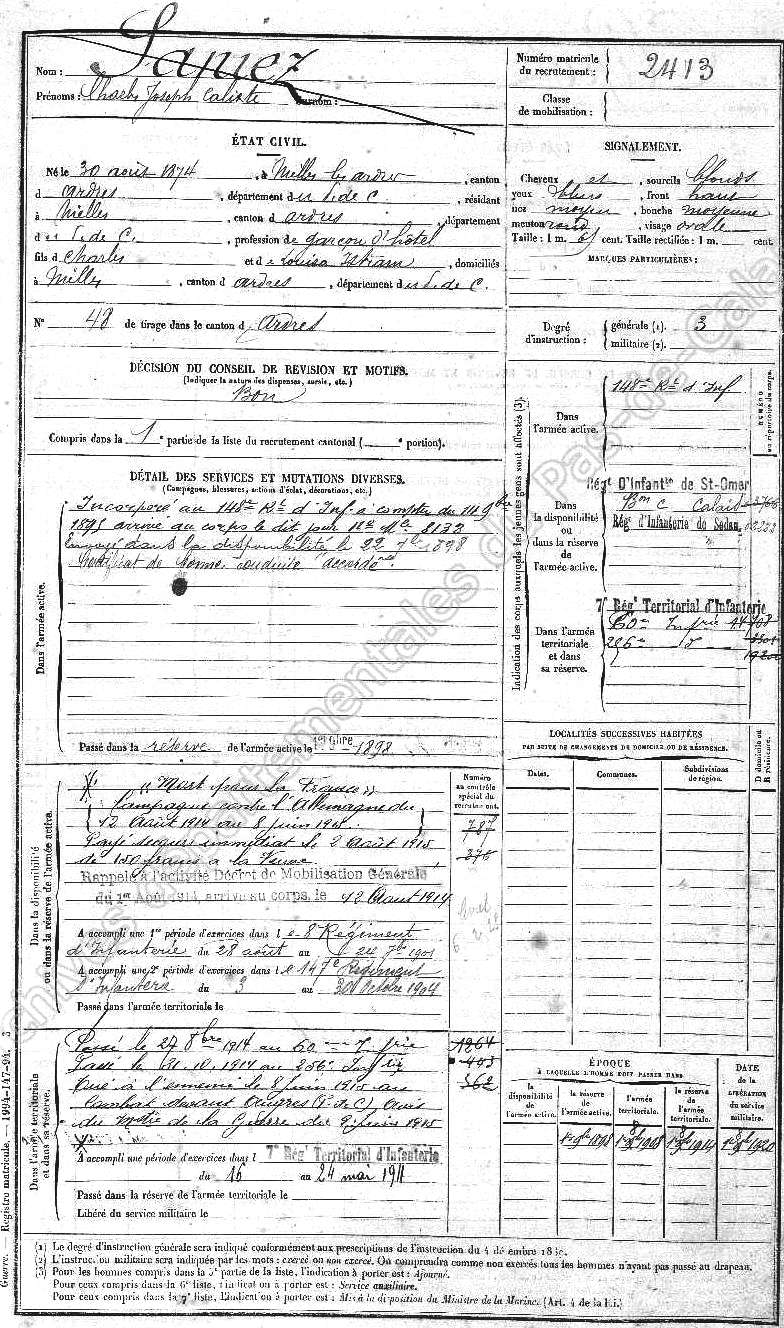 Nom : Sapiez
Prénoms : Charles Joseph Caliste Surnom :
ÉTAT CIVIL.
Né le 30 août 1874, à Nielles les ardres, canton
d ardres, département du P. de C., résidant
à Nielles, canton d ardres, département
d u P. de C., profession de garçon d'hôtel
fils d Charles et de Louisa, domiciliés
à Nielles, canton d ardres, département du P. de C.
N° 48 de tirage dans le canton d ardres
DÉCISION DU CONSEIL DE REVISION ET MOTIFS.
(Indiquer la nature des dispenses, sursis, etc.)
Bon
Compris dans la 1e partie de la liste du recrutement cantonal ( e portion).
DÉTAIL DES SERVICES ET MUTATIONS DIVERSES.
(Campagnes, blessures, actions d'éclat, décorations, etc.)
Dans l'armée active.
Incorporé au 148me Rt d'Inf à compter du 14 9bre
1895 arrivé au corps le dit jour
Envoyé dans la disponibilité le 22 7bre 1898
Certificat de bonne conduite accordé
Passé dans la réserve de l'armée active le 1er 9bre 1898
Dans la disponibilité
ou dans la réserve de l'armée active.
Numéro
au contrôle
spécial du
recrutement.
787
276
« Mort pour la France »
Campagne contre l'Allemagne du
12 Août 1914 au 8 juin 1915
Payé secours immédiat le 2 Août 1915
de 150 francs à la Veuve
Rappelé à l'activité Décret de Mobilisation Générale
du 1er Août 1914, arrivé au corps le 12 Août 1914
A accompli une 1re période d'exercices dans l e 8 Régiment
d'Infanterie du 28 août au 24 7bre 1901
A accompli une 2e période d'exercices dans l e 147e Régiment
d'Infanterie du 3 au 30 octobre 1904
Passé dans l'armée territoriale le
Dans l'armée territoriale
et dans sa réserve.
Passé le 27 8bre 1914 au 60
Passé le 31.10.1914 au 256e
Tué à l'ennemi le 8 juin 1915 au
combat devant Angres (P. de C) Avis
du Mtre de la Guerre du 9 juin 1915
562
A accompli une période d'exercices dans l 7e Régt Territorial d'Infanterie
du 16 au 24 mai 1911
Passé dans la réserve de l'armée territoriale le
Libéré du service militaire le
Numéro matricule
du recrutement : 2413
Classe
de mobilisation :
SIGNALEMENT.
Cheveux et, sourcils blonds
yeux bleus, front haut
nez moyen, bouche moyenne
menton rond, visage ovale
Taille : 1 m. 61 cent. Taille rectifiée : 1 m. cent.
MARQUES PARTICULIÈRES :
Degré
d'instruction :
générale (1). 3
militaire (2).
Indication des corps auxquels les jeunes gens sont affectés (3).
NUMÉRO
au répertoire du corps.
Dans
l'armée active.
148me Rt d'Inf
Dans
la disponibilité
ou
dans la réserve
de l'armée active.
Régt D'Infantie de St-Omer
Bon C Calais
Régt d'Infanterie de Sedan
Dans l'armée
territoriale
et dans
sa réserve.
7e Régt Territorial d'Infanterie
60e
LOCALITÉS SUCCESSIVES HABITÉES
PAR SUITE DE CHANGEMENTS DE DOMICILE OU DE RÉSIDENCE.
Dates.
Communes.
Subdivisions
de région.
D domicile ou
R résidence.
ÉPOQUE
À LAQUELLE L'HOMME DOIT PASSER DANS
la
disponibilité
de
l'armée active.
la réserve
de
l'armée active.
l'armée
territoriale.
la réserve
de l'armée
territoriale.
DATE
de la
LIBÉRATION
du service
militaire.
(1) Le degré d'instruction générale sera indiqué conformément aux prescriptions de l'instruction du 4 décembre
(2) L'instruction militaire sera indiquée par les mots : exercé ou non exercé. On comprendra comme non exercés tous les hommes n'ayant pas passé au drapeau.
(3) Pour les hommes compris dans la 5e partie de la liste, l'indication à porter est : Ajourné.
Pour ceux compris dans la 6e liste, l'indication à porter est : Service auxiliaire.
Pour ceux compris dans la 7e liste, l'indication à porter est : Mis à la disposition du Ministre de la Marine. (Art. 4 de la loi.)
Guerre. Registre matricule. — 1994-147-94. 3
Archives départementales du Pas-de-Calais